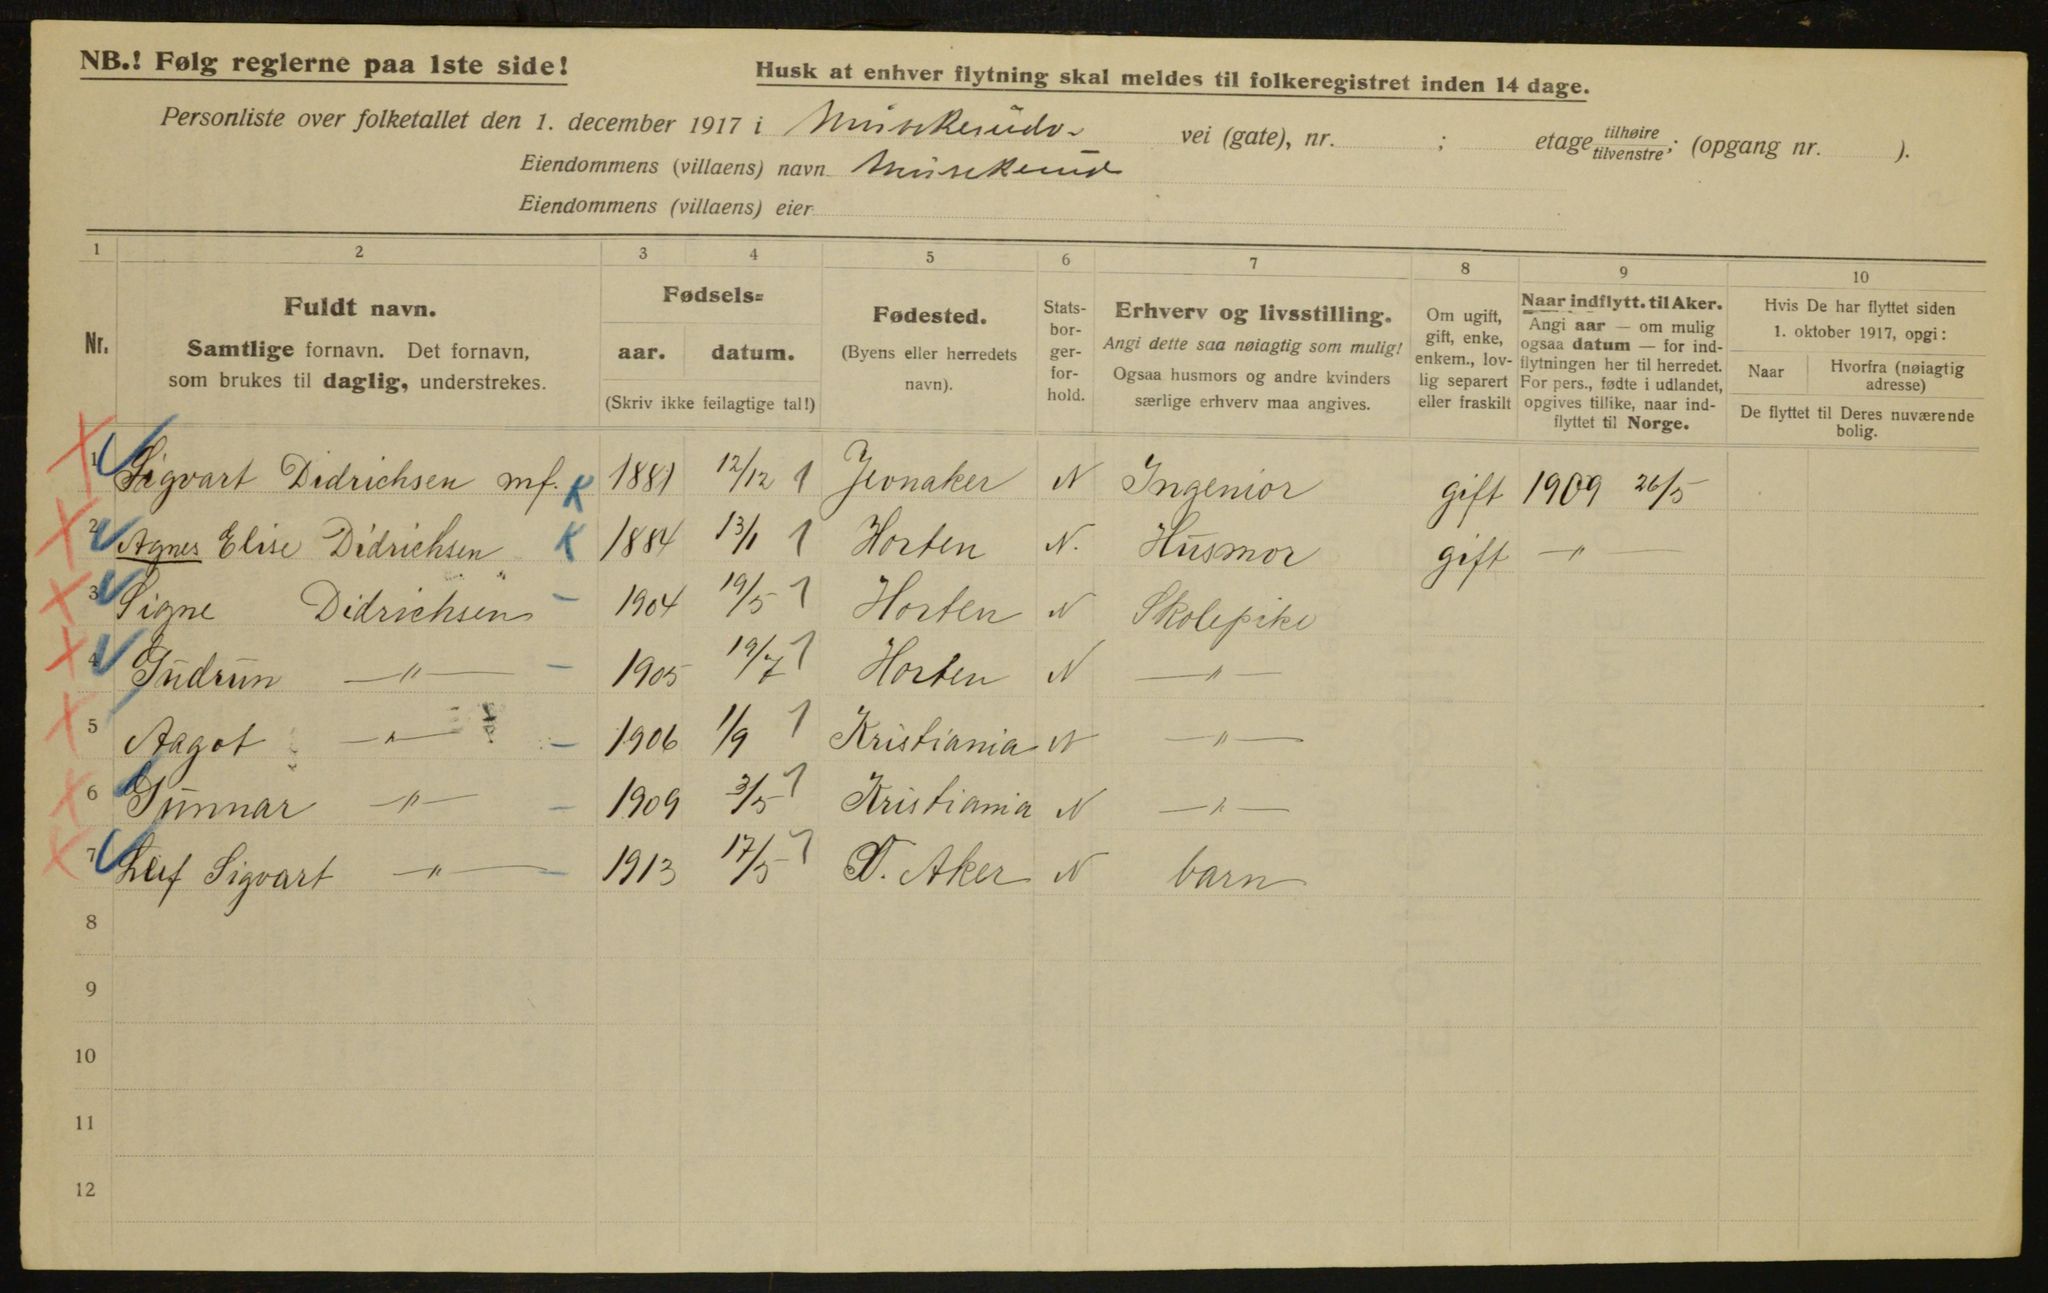 NB.! Følg reglerne paa 1ste side!
Husk at enhver flytning skal meldes til folkeregistret inden 14 dage.
Personliste over folketallet den 1. december 1917 i vei (gate), nr. ; etage tilhøire tilvenstre; (opgang nr. ).
Eiendommens (villaens) navn
Eiendommens (villaens) eier
1 2 3 4 5 6 7 8 9 10
Nr.
Fuldt navn.
Samtlige fornavn. Det fornavn,
som brukes til daglig, understrekes.
Fødsels=
aar. datum.
(Skriv ikke feilagtige tal!)
Fødested.
(Byens eller herredets
navn).
Stats-
bor-
ger-
for-
hold.
Erhverv og livsstilling.
Angi dette saa nøiagtig som mulig!
Ogsaa husmors og andre kvinders
særlige erhverv maa angives.
Om ugift,
gift, enke,
enkem., lov-
lig separert
eller fraskilt
Naar indflytt. til Aker.
Angi aar — om mulig
ogsaa datum — for ind-
flytningen her til herredet.
For pers., fødte i udlandet,
opgives tillike, naar ind-
flyttet til Norge.
Hvis De har flyttet siden
1. oktober 1917, opgi:
Naar
Hvorfra (nøiagtig
adresse)
De flyttet til Deres nuværende
bolig.
1 Sigvart Didrichsen mf. K 1881 12/12 1 Jevnaker N Ingeniør gift 1909 26/5
2 Agnes Elise Didrichsen K 1884 13/1 1 Horten N. Husmor gift —"—
3 Signe Didrichsen – 1904 19/5 1 Horten N Skolepike
4 Gudrun —"— – 1905 19/7 1 Horten N —"—
5 Aagot —"— – 1906 1/9 1 Kristiania N —"—
6 Gunnar —"— – 1909 3/5 1 Kristiania N —"—
7 Leif Sigvart —"— – 1913 17/5 1 V. Aker N barn
8
9
10
11
12